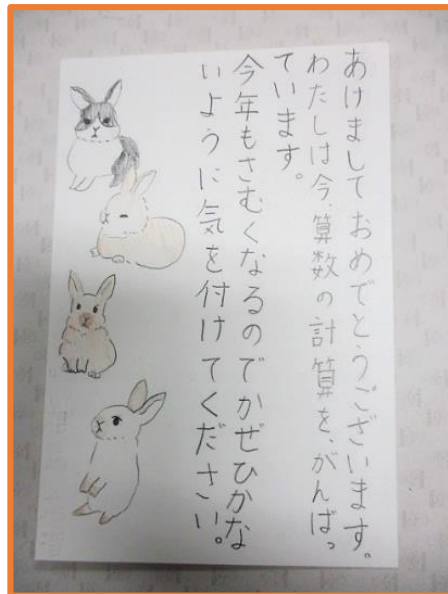 あけましておめでとうございます。
わたしは今、算数の計算を、がんばっ
ています。
今年もさむくなるのでかぜひかな
いように気を付けてください。